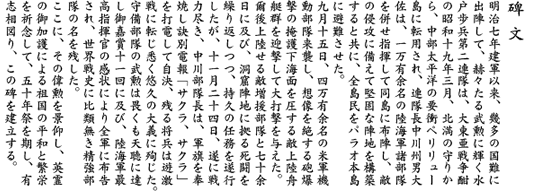 碑文
明治七年建軍以来、幾多の国難に
出陣して、赫々たる武勲に輝く水
戸歩兵第二連隊は、大東亜戦争酣
の昭和十九年三月、北満の守りか
ら、中部太平洋の要衝ペリリュー
島に転用され、連隊長中川州男大
佐は、一万有余名の陸海軍諸部隊
を併せ指揮して同島に布陣し、敵
の侵攻に備えて堅固な陣地を構築
すると共に、全島民をパラオ本島
に避難させた。
九月十五日、四万有余名の米軍機
動部隊来襲し、想像を絶する砲爆
撃の掩護下海面を圧する敵上陸舟
艇群を迎撃して大打撃を与えた。
爾後上陸せる敵増援部隊と七十余
日に及び、洞窟陣地に拠る死闘を
繰り返しつつ、持久の任務を遂行
したが、十一月二十四日、遂に戦
力尽き、中川部隊長は、軍旗を奉
焼し訣別電報「サクラ、サクラ」
を打電して自決、残る将兵は遊激
戦に転じ悉く悠久の大義に殉じた。
守備部隊の武勲は畏くも天聴に達
し御嘉賞十一回に及び、陸海軍最
高指揮官の感状により全軍に布告
され、世界戦史に比類無き精強部
隊の名を残した。
ここに、その偉勲を景仰し、英霊
の御加護による祖国の平和と繁栄
を祈念して、五十年祭を期し、有
志相図り、この碑を建立する。